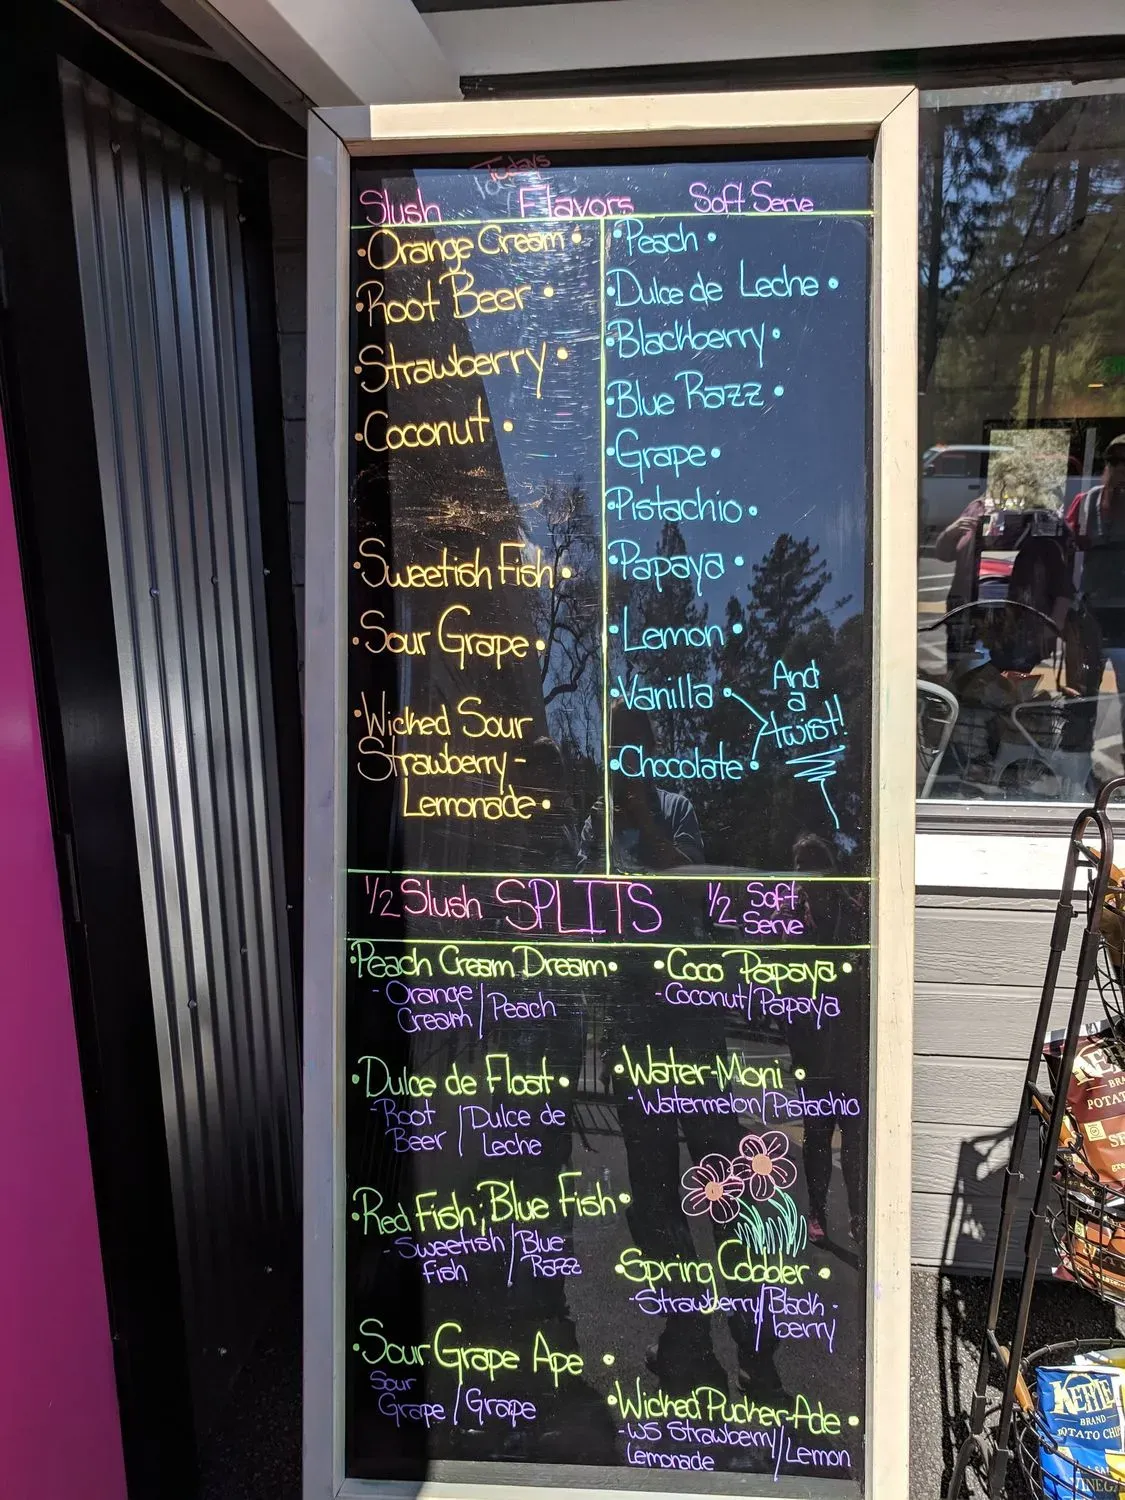 Todays
Slush Flavors Soft Serve
•Orange Cream•
•Root Beer•
•Strawberry•
•Coconut•
•Sweetish Fish•
•Sour Grape•
•Wicked Sour
Strawberry-
Lemonade•
•Peach•
•Dulce de Leche•
•Blackberry•
•Blue Razz•
•Grape•
•Pistachio•
•Papaya•
•Lemon•
•Vanilla•
•Chocolate•
And
a
twist!
1/2 Slush SPLITS 1/2 Soft
Serve
•Peach Cream Dream•
-Orange / Peach
Cream
•Dulce de Float•
-Root / Dulce de
Beer / Leche
•Red Fish; Blue Fish•
-Sweetish / Blue
Fish / Razz
•Sour Grape Ape•
Sour
Grape / Grape
•Coco Papaya•
-Coconut/Papaya
•Water-Moni•
-Watermelon/Pistachio
•Spring Cobbler•
-Strawberry/Black-
berry
•Wicked Pucker-Ade•
-WS Strawberry/Lemon
Lemonade
KETTLE
BRAND
POTATO CHIP
VINEG